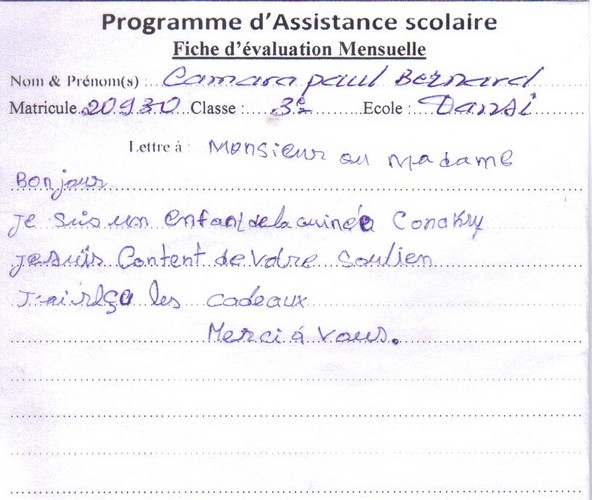 Programme d'Assistance scolaire
Fiche d'évaluation Mensuelle
Nom & Prénom(s) : Camara paul Bernard
Matricule 20930 Classe : 3e Ecole : Dansi
Lettre à : Monsieur ou Madame
Bonjour
je suis un enfant de la Guinée Conakry
je suis Content de Votre Soutien
J'ai reçu les cadeaux
Merci à Vous.